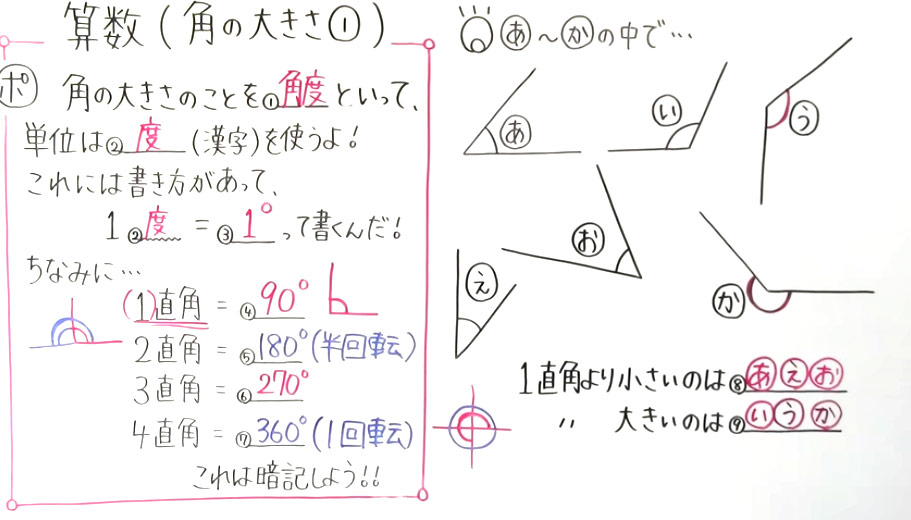 算数(角の大きさ①)
㋭ 角の大きさのことを①角度といって、
単位は②度(漢字)を使うよ!
これには書き方があって、
1②度=③1°って書くんだ!
ちなみに…
(1)直角=④90°
2直角=⑤180°(半回転)
3直角=⑥270°
4直角=⑦360°(1回転)
これは暗記しよう!!
あ~かの中で…
あ
い
う
え
お
か
1直角より小さいのは⑧あえお
〃 大きいのは⑨いうか